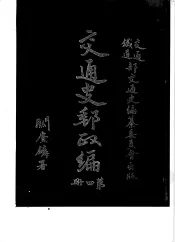 交通部
鐵道部
交通史編纂委員會出版
交通史郵政編
第四冊
關賡麟署